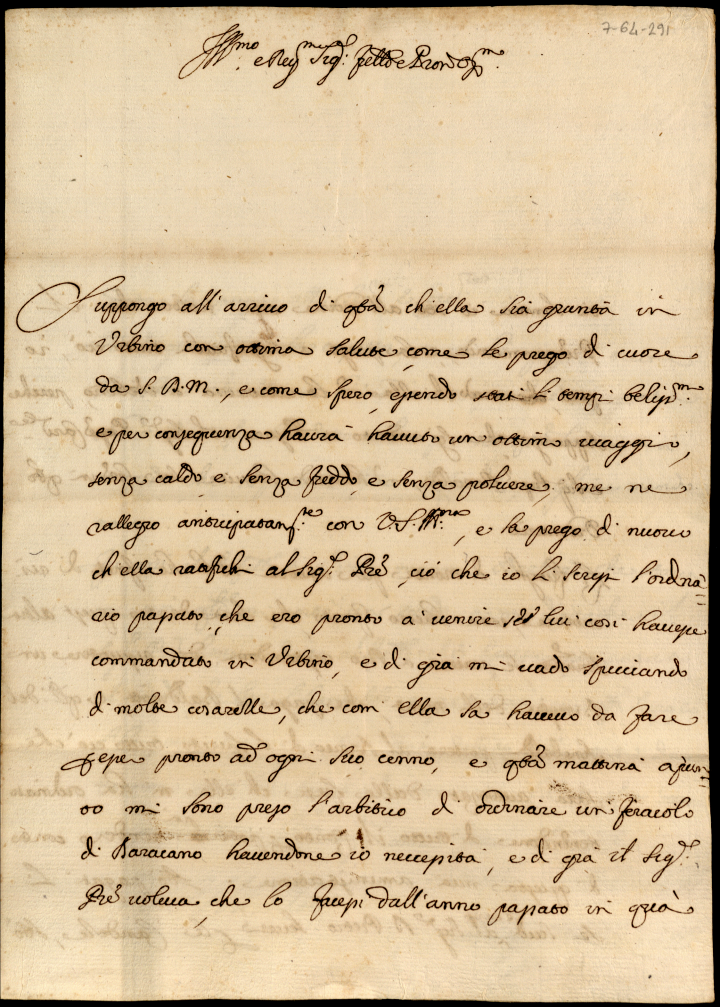 7-64-291
Ill.mo e Rev.mo Sig.r
Suppongo all'arriuo di q̃sta ch'ella sia giunta in
Vrbino con ottima salute, come le prego di cuore
da S. D. M., e come spero, essendo stati li tempi beliss.mi
e per consequenza haurà hauuto un ottimo uiaggio,
senza caldo e senza freddo, e senza poluere, me ne
rallegro anticipatam.te con V.S. Ill.ma, e la prego di nuouo
ch'ella ratifichi al Sig.r Pre͂, ciò che io li scrissi l'ordina=
rio passato, che ero pronto à uenire se lui così hauesse
commandato in Vrbino, e di già mi uado spicciando
di molte cosarelle, che com ella sa haueuo da fare
p esser pronto ad ogni suo cenno, e q̃sta mattina apun=
to mi sono preso l'arbitrio di ordinare un feraiolo
di Baracano hauendone io necessità, e di già il Sig.r
Pre͂ uoleua, che lo facessi dall'anno passato in quà